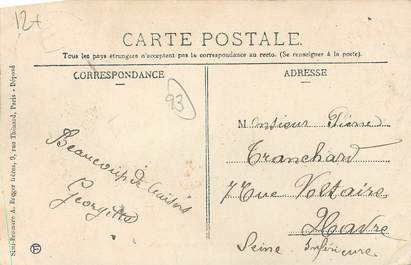 12+
CARTE POSTALE.
Tous les pays étrangers n'acceptent pas la correspondance au recto. (Se renseigner à la poste).
CORRESPONDANCE
ADRESSE
93
Beaucoup de baisers
Georgette
Monsieur Pierre
Tranchard
7 Rue Voltaire
Havre
Seine Inférieure
A. Breger frères, 9, rue Thénard, Paris - Déposé